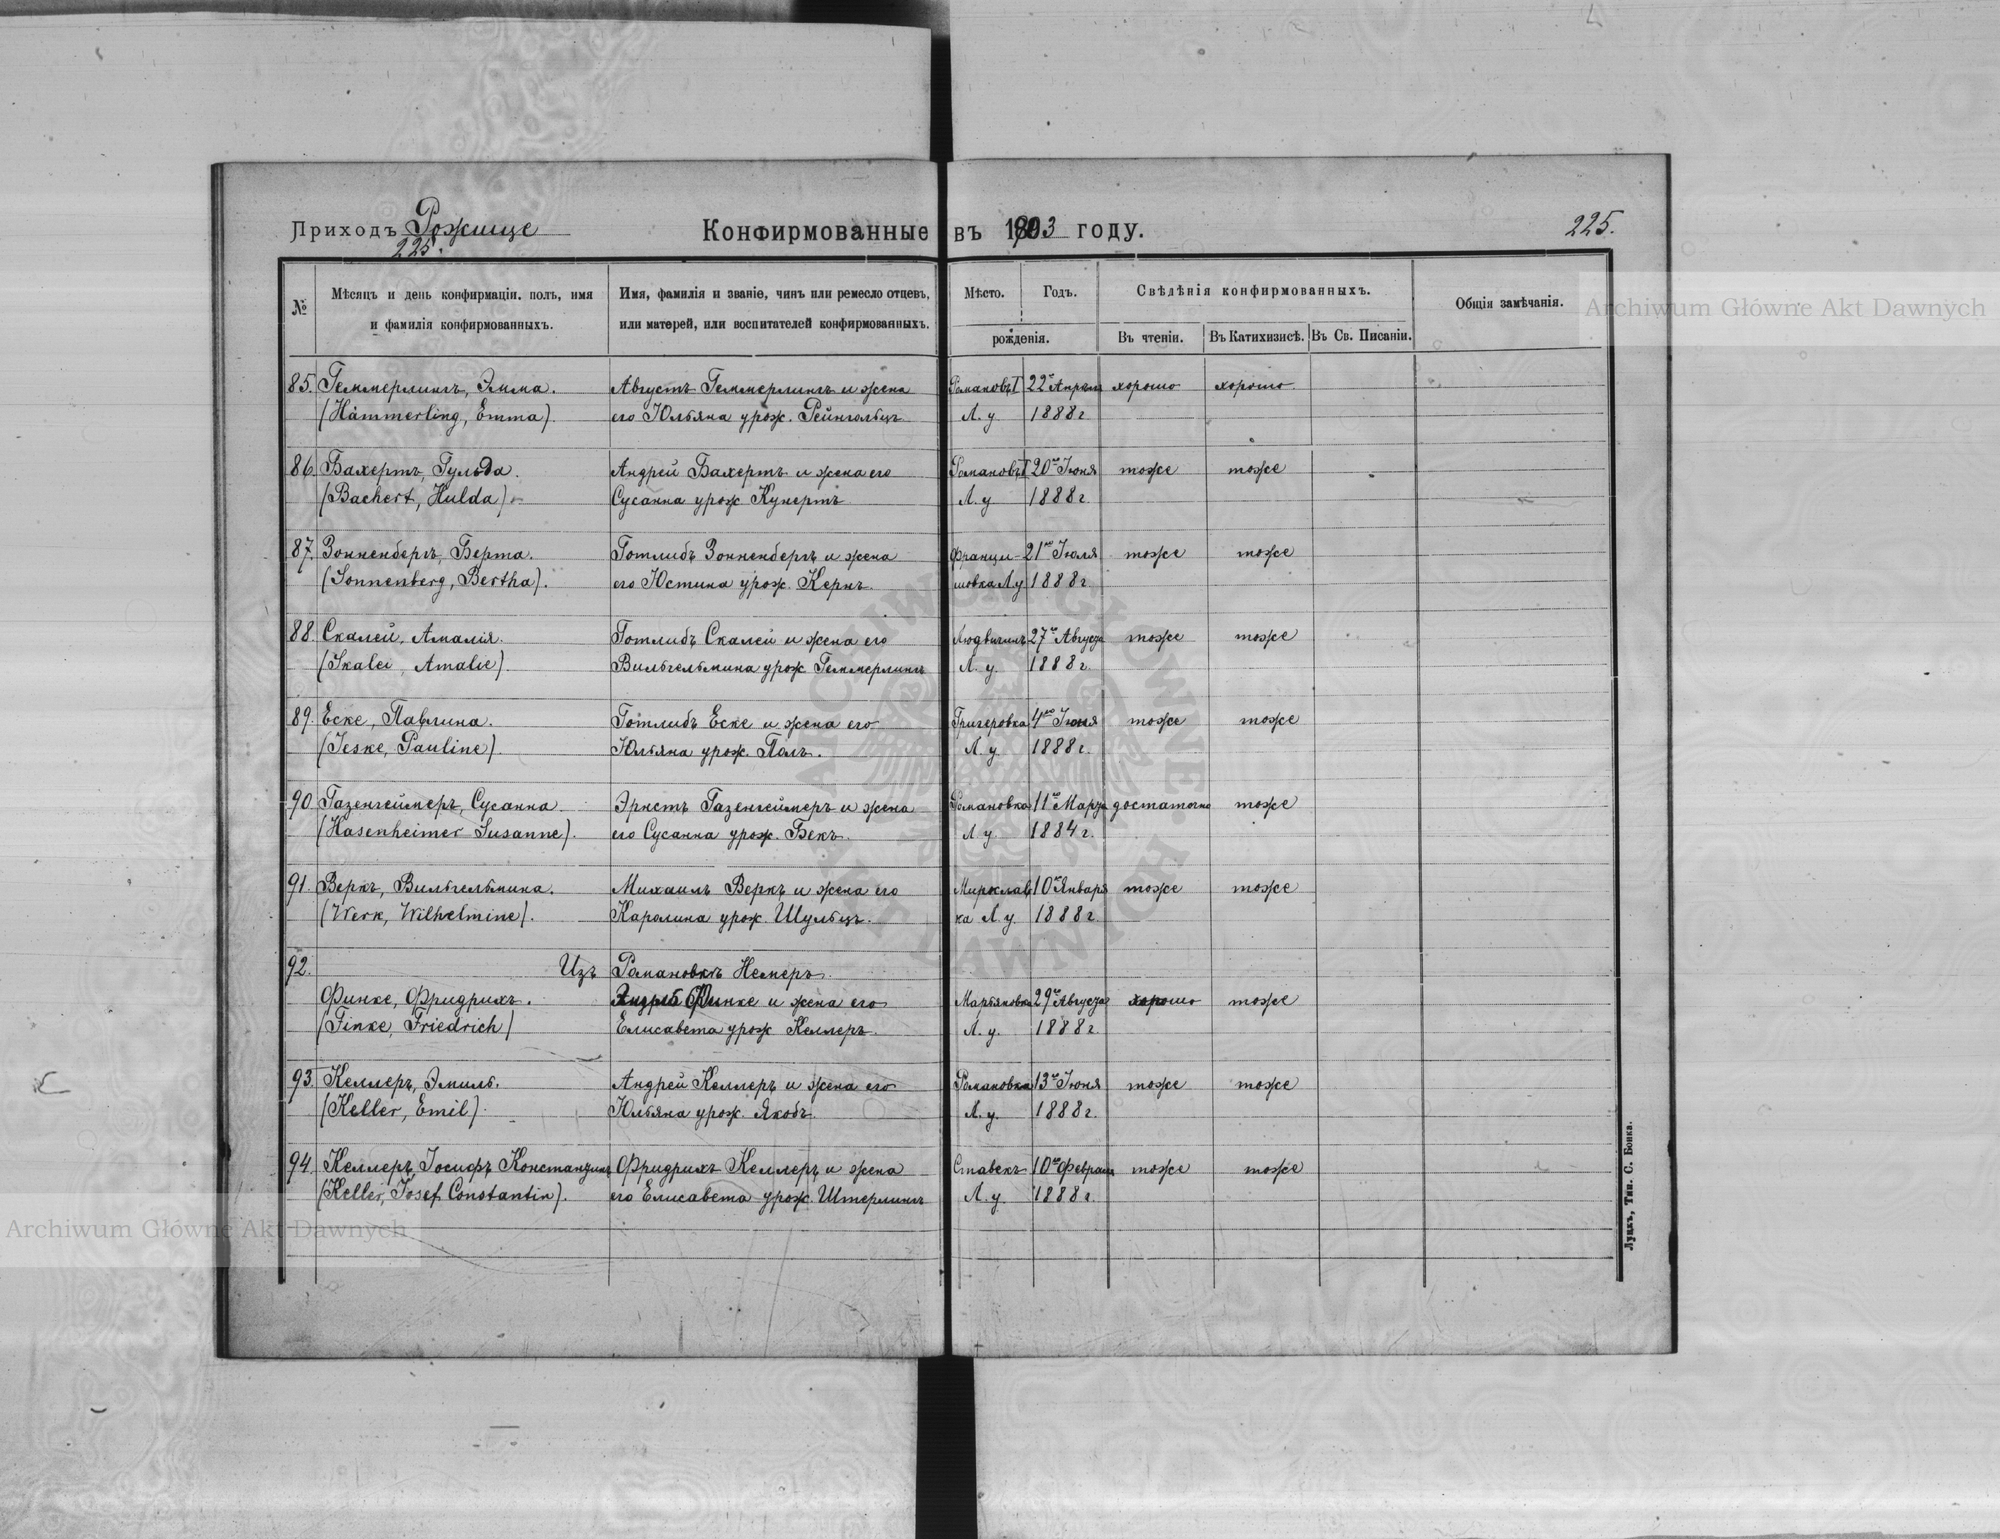 Приходъ Рожище
225.
Конфирмованные въ 1903 году.
225.
№
Мѣсяцъ и день конфирмаціи, полъ, имя
и фамилія конфирмованныхъ.
Имя, фамилія и званіе, чинъ или ремесло отцевъ,
или матерей, или воспитателей конфирмованныхъ.
Мѣсто.
Годъ.
рожденія.
Свѣдѣнія конфирмованныхъ.
Въ чтеніи.
Въ Катихизисѣ.
Въ Св. Писаніи.
Общія замѣчанія.
85. Геммерлингъ, Эмма. Августъ Геммерлингъ и жена Романовъ I 22го Апрѣля хорошо хорошо
(Hämmerling, Emma). его Юльяна урож. Рейнгольцъ. Л. у. 1888 г.
86. Бахертъ, Гульда. Андрей Бахертъ и жена его Романовъ I 20го Іюня тоже тоже
(Bachert, Hulda) Сусанна урож. Кунертъ Л. у 1888 г.
87. Зонненбергъ, Берта. Готлибъ Зонненбергъ и жена Францы- 21го Іюля тоже тоже
(Sonnenberg, Bertha). его Юстина урож. Кернъ. шовка Л у 1888 г.
88. Скалей, Амалія. Готлибъ Скалей и жена его 27го Августа тоже тоже
(Skalei, Amalie). Вильгельмина урож. Геммерлингъ Л. у. 1888 г.
89. Еске, Павлина. Готлибъ Еске и жена его 4го тоже тоже
(Jeske, Pauline). Юльяна урож. Полъ. Л. у. 1888 г.
90. Газенгеймеръ, Сусанна. Эрнстъ Газенгеймеръ и жена Романовка 11го Марта достаточно тоже
(Hasenheimer Susanne). его Сусанна урож. Бекъ. Л. у. 1884 г.
91. Веркъ, Вильгельмина. Михаилъ Веркъ и жена его Мирослав 10го Января тоже тоже
(Werk, Wilhelmine). Каролина урож. Шульцъ. ка Л. у. 1888 г.
92. Изъ Романовкъ Немеръ.
Финке, Фридрихъ. Финке и жена его Марьяновка 29го Августа хорошо тоже
(Finke, Friedrich) Елисавета урож. Келлеръ. Л. у. 1888 г.
93. Келлеръ, Эмиль. Андрей Келлеръ и жена его Романовка 13го Іюня тоже тоже
(Keller, Emil). Юльяна урож. Якобъ. Л. у. 1888 г.
94. Келлеръ, Іосифъ Константинъ Фридрихъ Келлеръ и жена Ставекъ 10го Февраля тоже тоже
(Keller, Josef Constantin). его Елисавета урож. Штерлингъ Л. у. 1888 г.
Луцкъ, Тип. С. Бонка.
Archiwum Główne Akt Dawnych
Archiwum Główne Akt Dawnych
ARCHIWUM GŁÓWNE AKT DAWNYCH